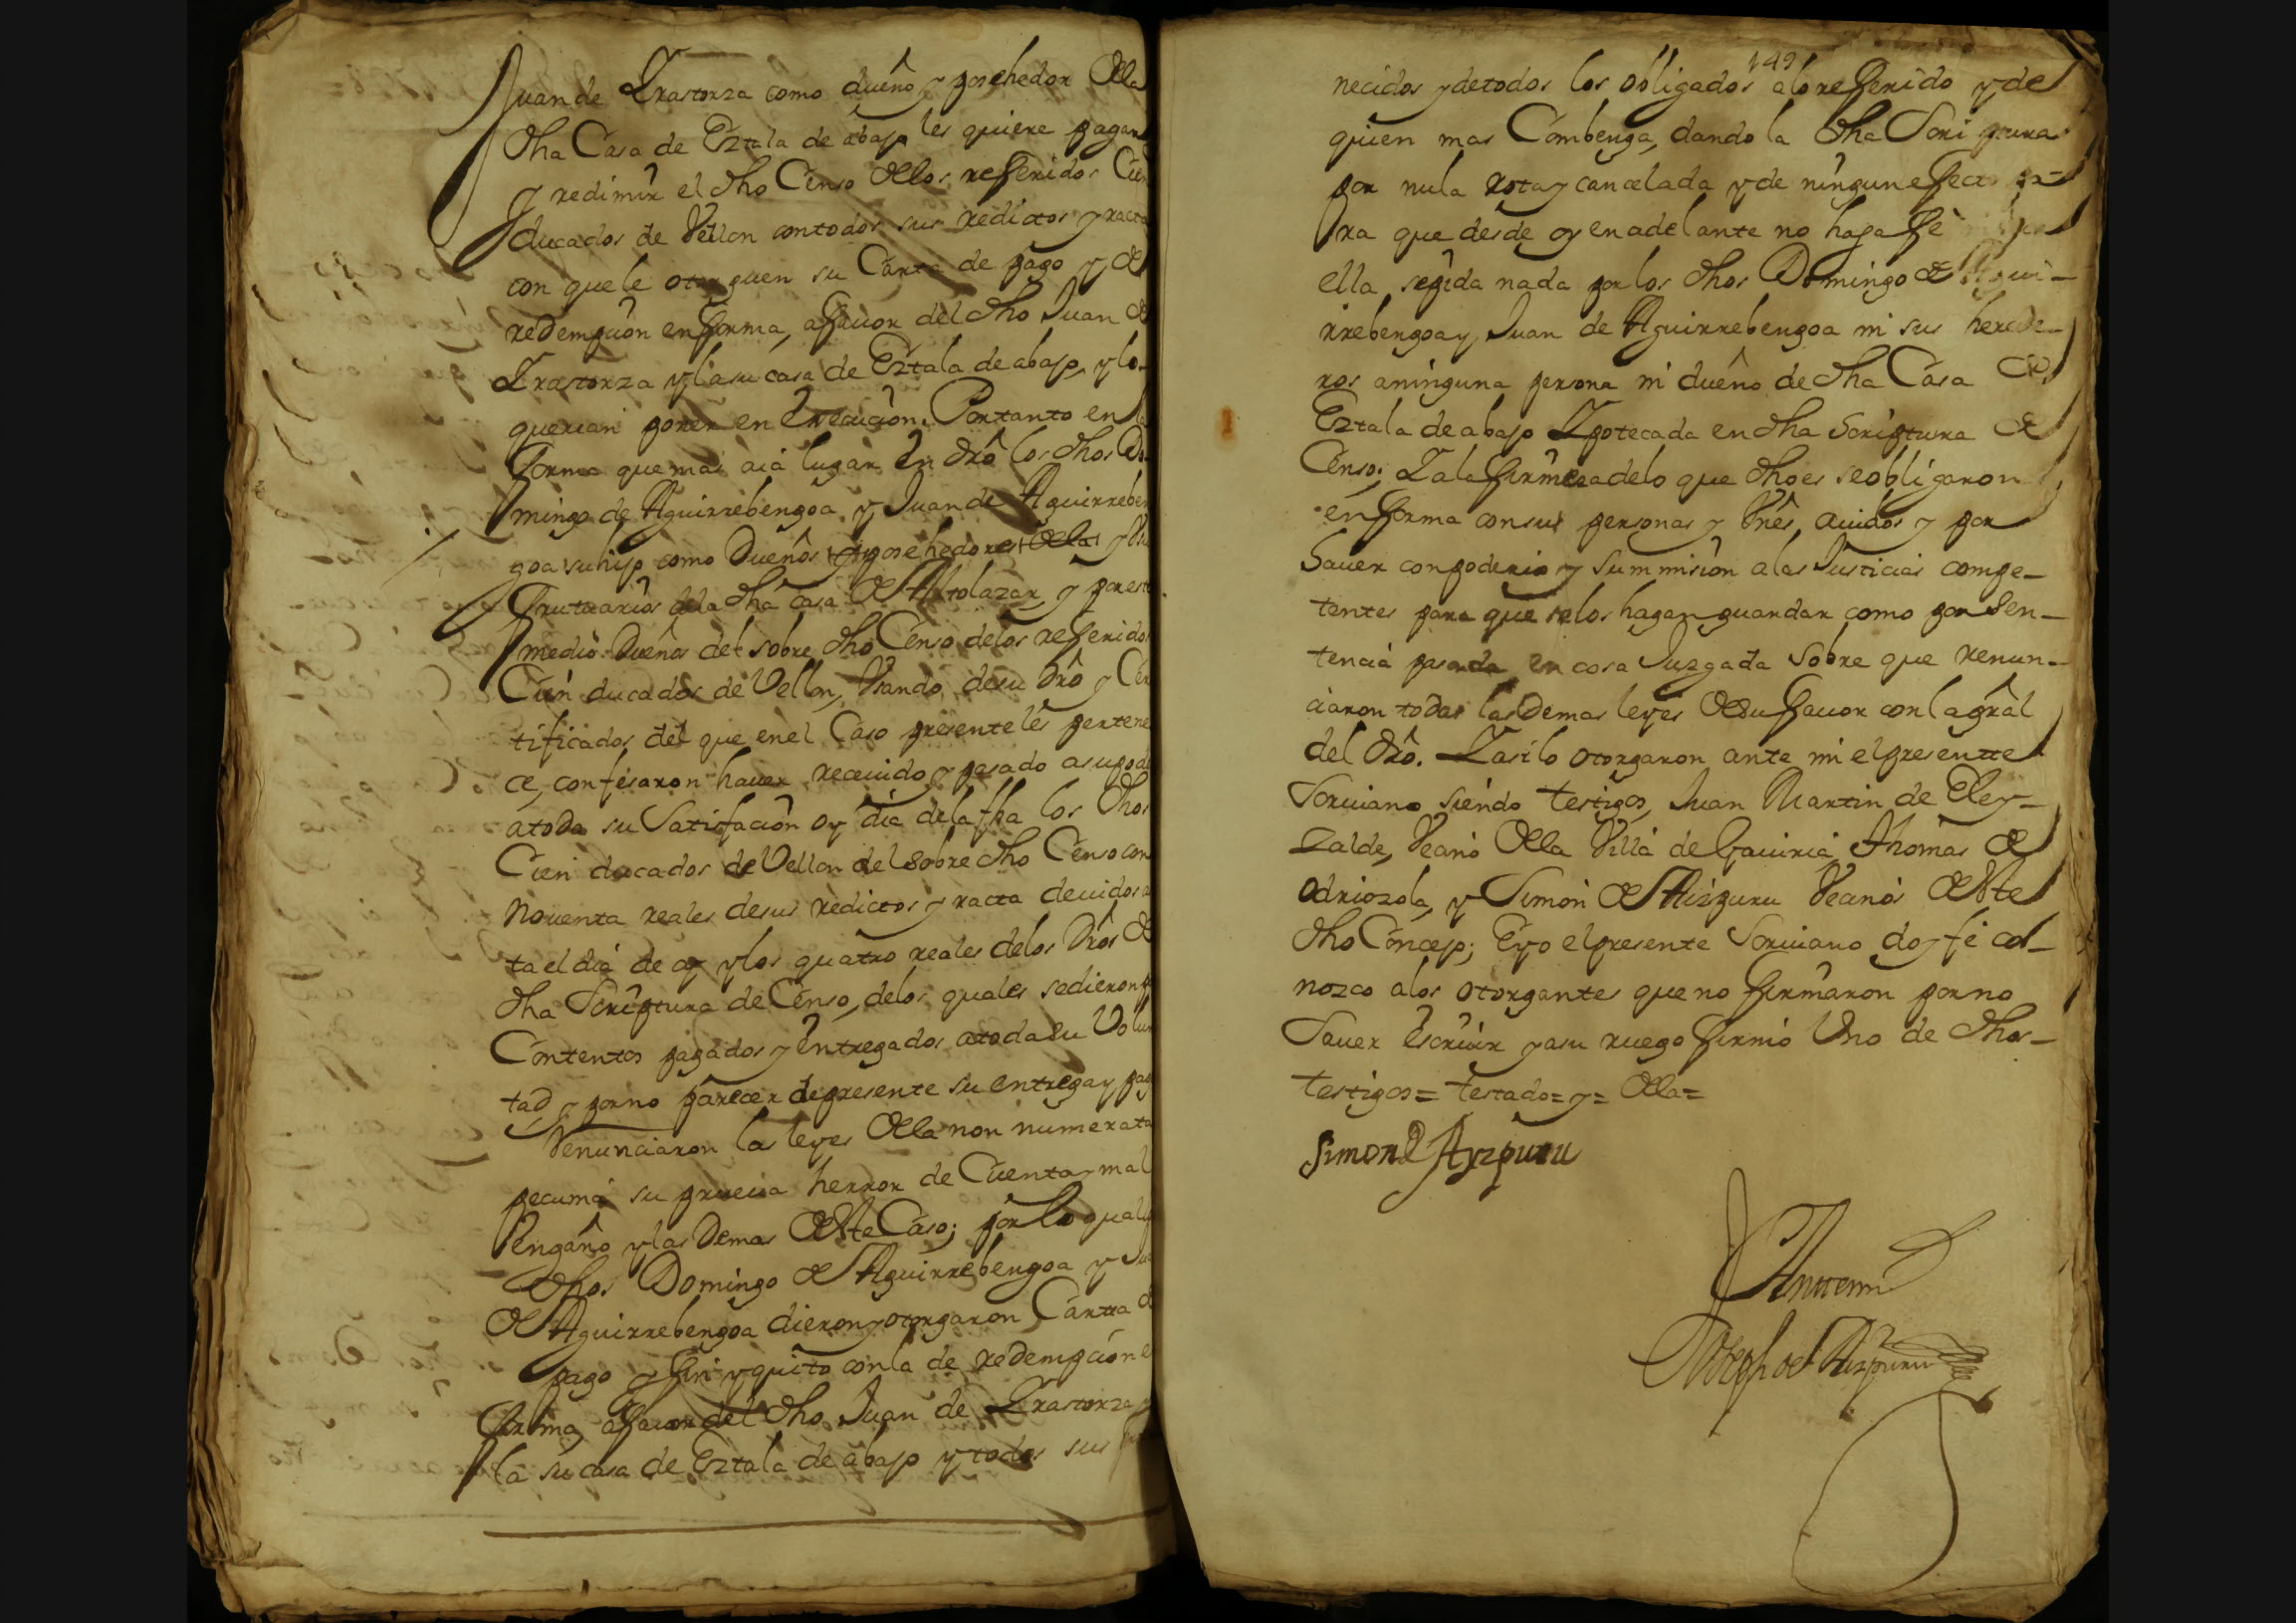 Juan de Yrastorza como dueño y poschedor de la
dha Casa de Eztala de abajo les quiere pagar
y redimir el dho Censo de los referidos Cien
ducados de Vellon con todos sus redictos y racta
con que le otorguen su Carta de pago y de
redempcion en forma, a favor del dho Juan de
Yrastorza y la su casa de Eztala de abajo, y lo
querian poner en execucion. Por tanto en la
forma que mas aia lugar en dro los dhos Do-
mingo de Aguirrebengoa, y Juan de Aguirreben
goa su hijo como Dueños y poschedores de la y Usu
fructuarios de la dha casa de Altolazar, y por este
medio Dueños del sobre dho Censo de los referidos
Cien ducados de Vellon, Usando de su dro y Cer
tificados del que en el Caso presente les pertene
ce, confesaron haver receuido y pasado a su pode
a toda su Satisfacion oy dia de la fha los dhos
Cien ducados de Vellon del sobre dho Censo con
noventa reales de sus redictos y racta deuidos a
ta el dia de oy y los quatro reales de los dros de
dha Scriptura de Censo, de los quales se dieron p
Contentos pagados y Entregados a toda su Volun
tad y por no parecer de presente su entrega y pag
Renunciaron las leyes de la non numerata
pecunia su prueua herror de Cuenta y mal
engaño y las Demas de este Caso; por lo qual
dhos Domingo de Aguirrebengoa y Jua
de Aguirrebengoa dieron y otorgaron Cartta de
pago y fin y quito con la de redempcion e
forma, a favor del dho Juan de Yrastorza y
la su casa de Eztala de abajo y todos sus
149
necidos y de todos los obligados a lo referido y de
quien mas Combenga, dando la dha Scriptura
por nula rota y cancelada y de ningun efecto pa-
ra que desde oy en adelante no haga fe
ella se pida nada por los dhos Domingo de Agui-
rrebengoa y Juan de Aguirrebengoa ni sus herede-
ros a ninguna persona ni dueño de dha Casa de
Eztala de abajo Ypotecada en dha Scriptura de
Censo; Y a la firmeza de lo que dho es se obligaron
en forma con sus personas y Vnês, auidos y por
hauer con poderio y summision a las Justicias compe-
tentes para que se los hagan guardar como por Sen-
tencia pasada en cosa Juzgada sobre que renun-
ciaron todas las Demas leyes de su fauor con la gral
del dro. Y asi lo otorgaron ante mi el presentte
Scriuano siendo testigos, Juan Martin de Eley-
zalde, Vecino de la Villa de Gauiria, Thomas de
Odriozola, y Simon de Aizpuru Vecinos de este
dho Concejo; E yo el presente Scriuano doy fe co-
nozco a los otorgantes que no firmaron por no
Sauer Escriuir y a su ruego firmo Uno de dhos-
testigos = testado = y = de la =
Simon de Ayzpuru
Antemi
Joseph de Aizpuru